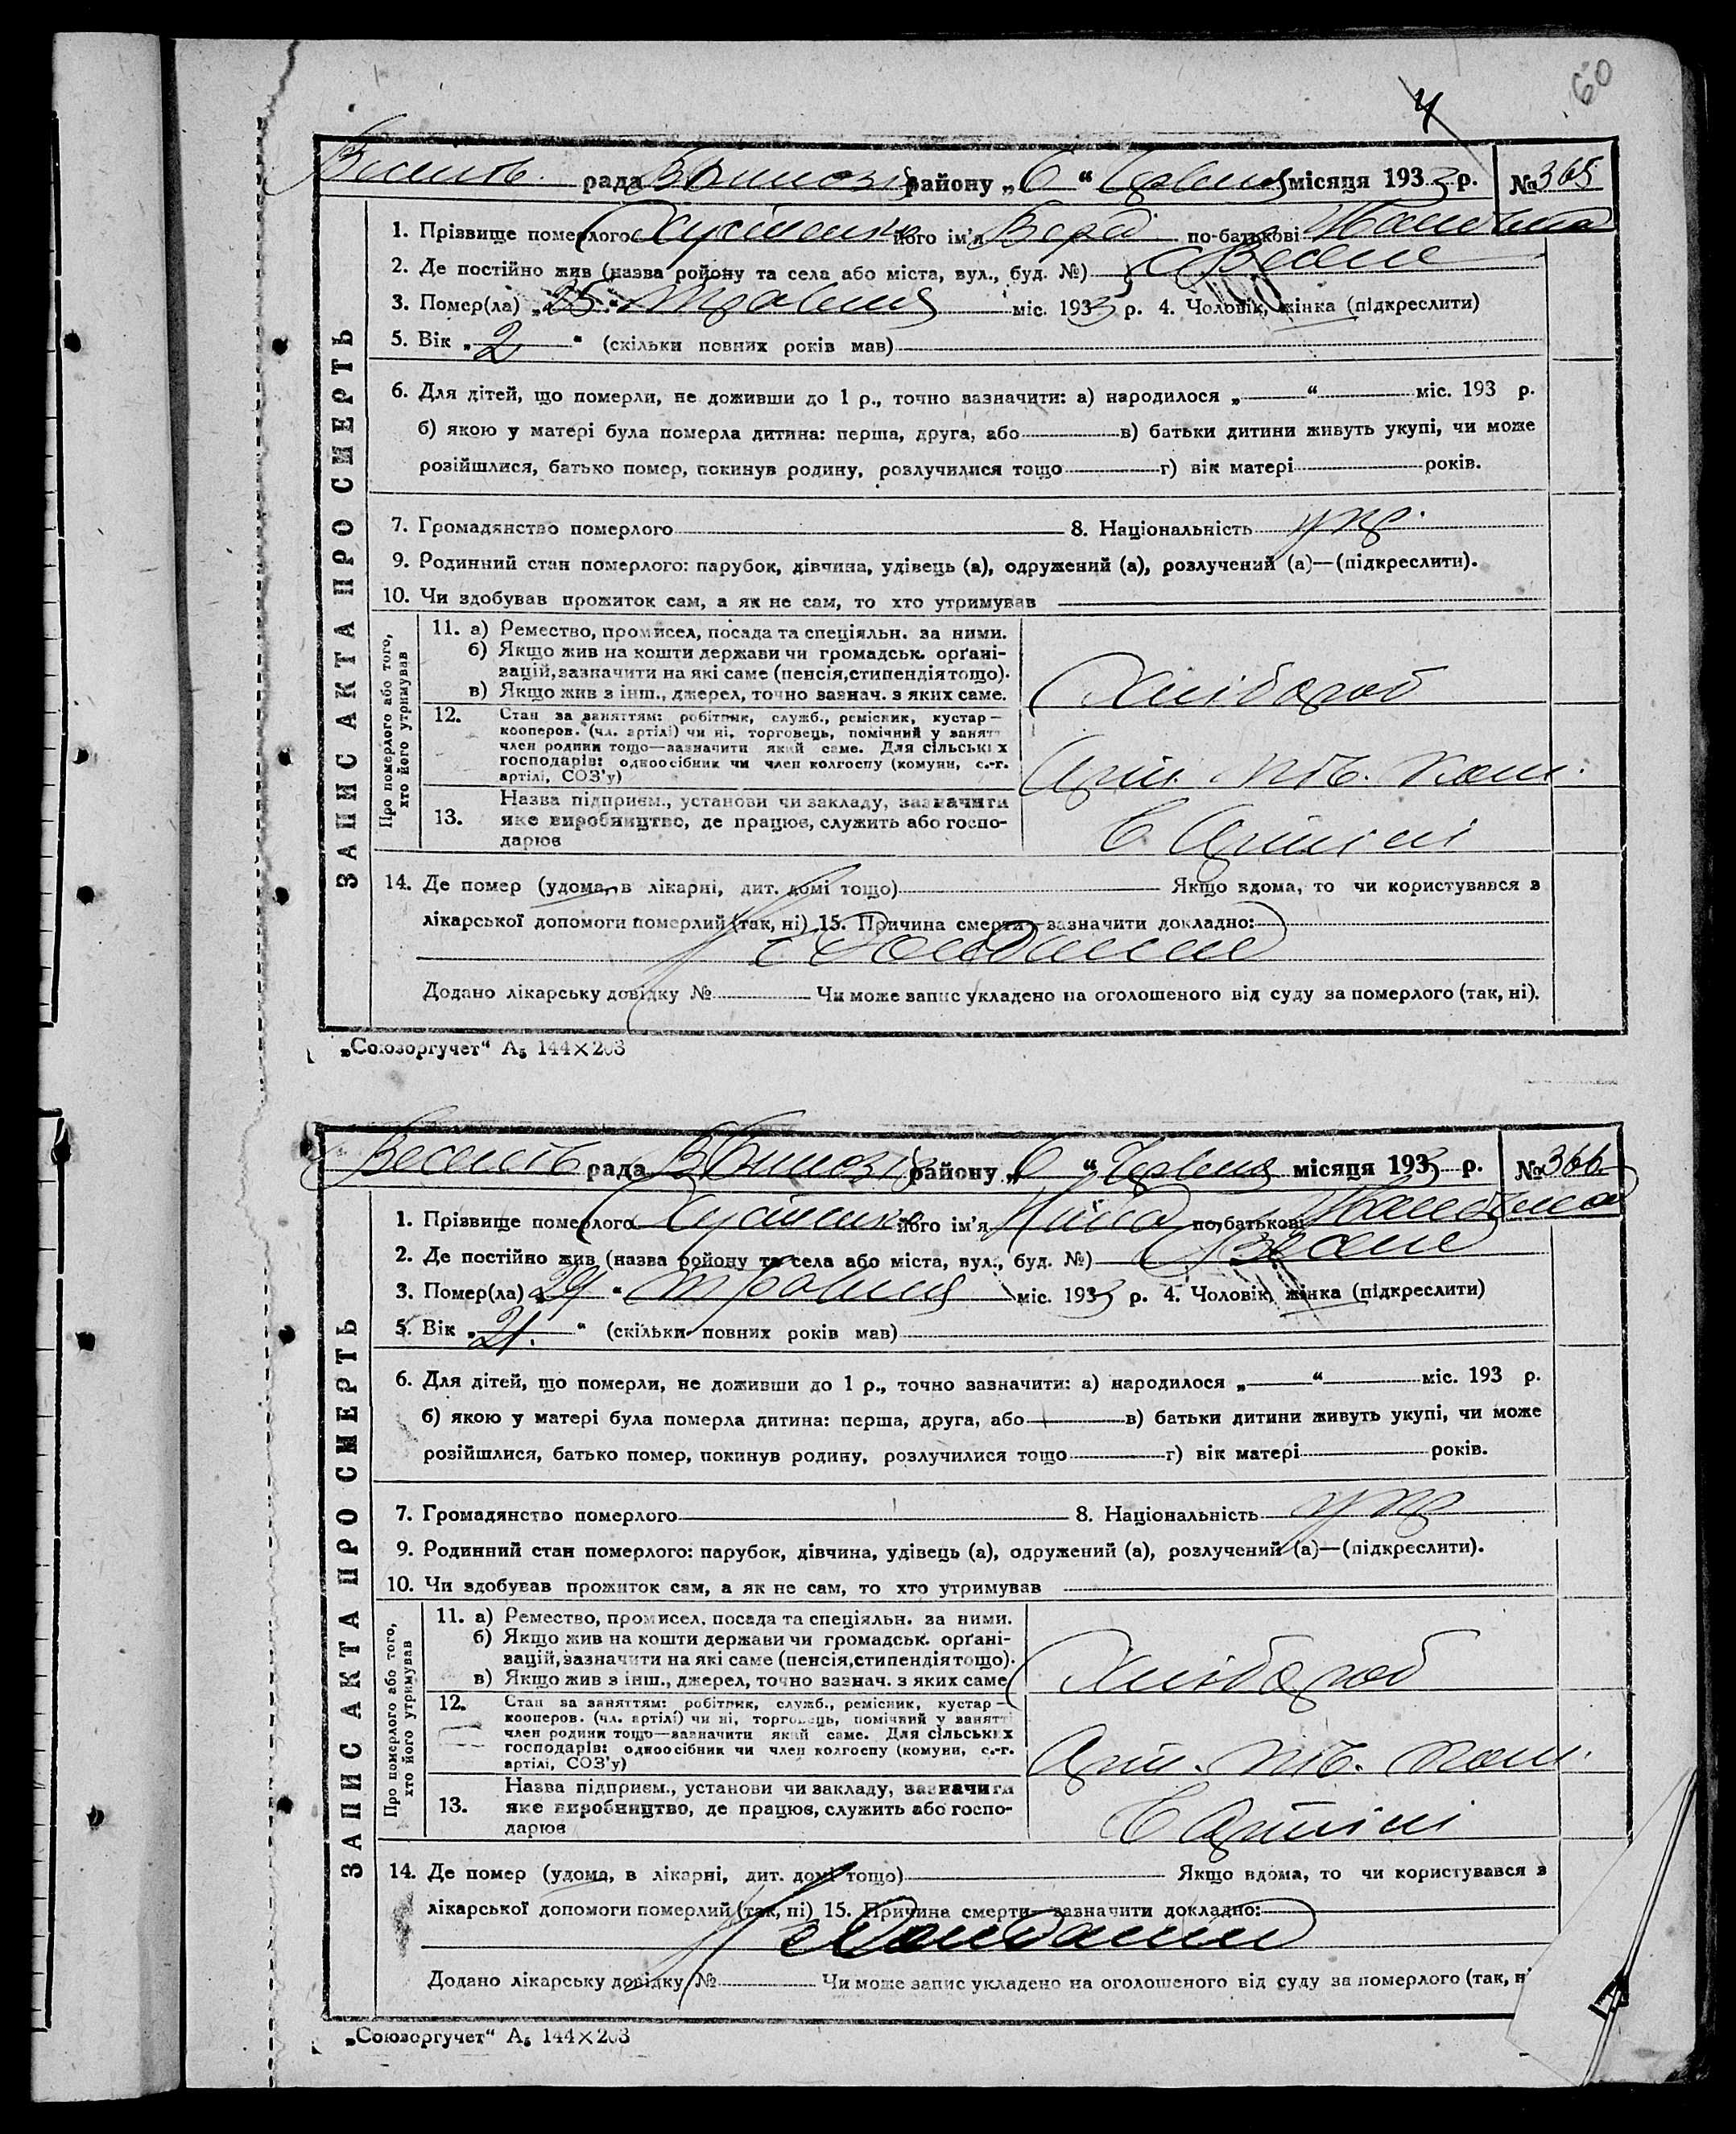 60
4
рада району „6" Червня місяця 1933 р. № 365
ЗАПИС АКТА ПРО СМЕРТЬ
1. Прізвище померлого його ім'я Вера по-батькові
2. Де постійно жив (назва ройону та села або міста, вул., буд. №) с. Веселе
3. Помер(ла) „25" Травня міс. 1933 р. 4. Чоловік, жінка (підкреслити)
5. Вік „2" (скільки повних років мав)
6. Для дітей, що померли, не доживши до 1 р., точно зазначити: а) народилося „ " міс. 193 р.
б) якою у матері була померла дитина: перша, друга, або в) батьки дитини живуть укупі, чи може
розійшлися, батько помер, покинув родину, розлучилися тощо г) вік матері років.
7. Громадянство померлого 8. Національність укр.
9. Родинний стан померлого: парубок, дівчина, удівець (а), одружений (а), розлучений (а)—(підкреслити).
10. Чи здобував прожиток сам, а як не сам, то хто утримував
Про померлого або того, хто його утримував
11. а) Ремество, промисел, посада та спеціяльн. за ними.
б) Якщо жив на кошти держави чи громадськ. орґані-
зацій, зазначити на які саме (пенсія, стипендія тощо).
в) Якщо жив з інш., джерел, точно зазнач. з яких саме.
Хлібороб
12. Стан за заняттям: робітник, служб., ремісник, кустар—
кооперов. (чл. артілі) чи ні, торговець, помічний у занятт
член родини тощо—зазначити який саме. Для сільських
господарів: одноосібник чи член колгоспу (комуни, с.-г.
артілі, СОЗ'у)
13. Назва підприєм., установи чи закладу, зазначити
яке виробництво, де працює, служить або госпо-
дарює
В Артілі
14. Де помер (удома, в лікарні, дит. домі тощо) Якщо вдома, то чи користувався з
лікарської допомоги померлий (так, ні) 15. Причина смерти—зазначити докладно:
Додано лікарську довідку № Чи може запис укладено на оголошеного від суду за померлого (так, ні).
„Союзоргучет" А₅ 144×203
рада району „6" Червня місяця 1933 р. № 366
ЗАПИС АКТА ПРО СМЕРТЬ
1. Прізвище померлого його ім'я по-батькові
2. Де постійно жив (назва ройону та села або міста, вул., буд. №) с. Веселе
3. Помер(ла) „ " травня міс. 1933 р. 4. Чоловік, жінка (підкреслити)
5. Вік „ " (скільки повних років мав)
6. Для дітей, що померли, не доживши до 1 р., точно зазначити: а) народилося „ " міс. 193 р.
б) якою у матері була померла дитина: перша, друга, або в) батьки дитини живуть укупі, чи може
розійшлися, батько помер, покинув родину, розлучилися тощо г) вік матері років.
7. Громадянство померлого 8. Національність укр
9. Родинний стан померлого: парубок, дівчина, удівець (а), одружений (а), розлучений (а)—(підкреслити).
10. Чи здобував прожиток сам, а як не сам, то хто утримував
Про померлого або того, хто його утримував
11. а) Ремество, промисел, посада та спеціяльн. за ними.
б) Якщо жив на кошти держави чи громадськ. орґані-
зацій, зазначити на які саме (пенсія, стипендія тощо).
в) Якщо жив з інш., джерел, точно зазнач. з яких саме
Хлібороб
12. Стан за заняттям: робітник, служб., ремісник, кустар—
кооперов. (чл. артілі) чи ні, торговець, помічний у занятті
член родини тощо—зазначити який саме. Для сільських
господарів: одноосібник чи член колгоспу (комуни, с.-г.
артілі, СОЗ'у)
13. Назва підприєм., установи чи закладу, зазначити
яке виробництво, де працює, служить або госпо-
дарює
В Артілі
14. Де помер (удома, в лікарні, дит. домі тощо) Якщо вдома, то чи користувався з
лікарської допомоги померлий (так, ні) 15. Причина смерти—зазначити докладно:
Додано лікарську довідку № Чи може запис укладено на оголошеного від суду за померлого (так, ні
„Союзоргучет" А₅ 144×203